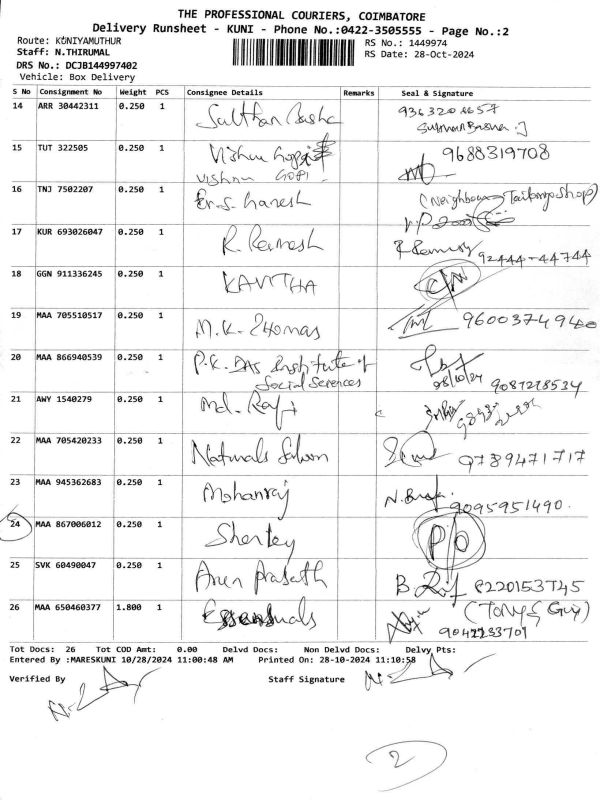 THE PROFESSIONAL COURIERS, COIMBATORE
Delivery Runsheet - KUNI - Phone No.:0422-3505555 - Page No.:2
Route: KUNIYAMUTHUR
RS No.: 1449974
Staff: N.THIRUMAL
RS Date: 28-Oct-2024
DRS No.: DCJB144997402
Vehicle: Box Delivery
S No Consignment No Weight PCS Consignee Details Remarks Seal & Signature
14 ARR 30442311 0.250 1 Sulthan Basha
15 TUT 322505 0.250 1 Vishnu 9688319708
Vishnu Gopi
16 TNJ 7502207 0.250 1 Er.S. Ganesh (Neighbour Tailoring Shop)
17 KUR 693026047 0.250 1 R. Ramesh 92444-44744
18 GGN 911336245 0.250 1 KAVITHA
19 MAA 705510517 0.250 1 M.K. Thomas
20 MAA 866940539 0.250 1 P.K. DAS Institute of
Social Sciences 28/10/24 9087278534
21 AWY 1540279 0.250 1 Md. Rafi
22 MAA 705420233 0.250 1 Naturals Saloon 9789471717
23 MAA 945362683 0.250 1 Mohanraj 9095951490
24 MAA 867006012 0.250 1 Sherley P/O
25 SVK 60490047 0.250 1 Arun Prasath 8220153745
26 MAA 650460377 1.800 1 Essensuals (Tony & Guy)
9042233701
Tot Docs: 26 Tot COD Amt: 0.00 Delvd Docs: Non Delvd Docs: Delvy Pts:
Entered By :MARESKUNI 10/28/2024 11:00:48 AM Printed On: 28-10-2024 11:10:58
Verified By Staff Signature
2